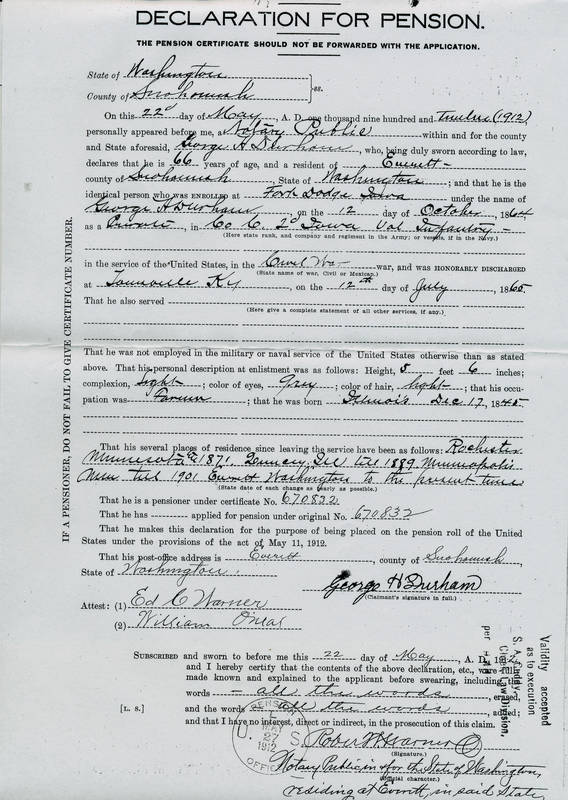 DECLARATION FOR PENSION.
THE PENSION CERTIFICATE SHOULD NOT BE FORWARDED WITH THE APPLICATION.
State of Washington
County of Snohomish } ss.
On this 22d day of May, A. D. one thousand nine hundred and twelve (1912)
personally appeared before me, a Notary Public within and for the county
and State aforesaid, George H Durham, who, being duly sworn according to law,
declares that he is 66 years of age, and a resident of Everett
county of Snohomish, State of Washington; and that he is the
identical person who was ENROLLED at Fort Dodge Iowa under the name of
George H Durham, on the 12 day of October, 1864
as a Private, in Co C. 2d Iowa Vol Infantry
(Here state rank, and company and regiment in the Army; or vessels, if in the Navy.)
in the service of the United States, in the Civil War war, and was HONORABLY DISCHARGED
(State name of war, Civil or Mexican.)
at Ky, on the 12th day of July, 1865
That he also served
(Here give a complete statement of all other services, if any.)
That he was not employed in the military or naval service of the United States otherwise than as stated
above. That his personal description at enlistment was as follows: Height, 5 feet 6 inches;
complexion, Light; color of eyes, gray; color of hair, light; that his occu-
pation was Farmer; that he was born Illinois Dec 17, 1845
That his several places of residence since leaving the service have been as follows: Rochester
Minnesota 1871, Quincy, Ill till 1889. Minneapolis
Minn till 1901 Everett Washington to the present time
(State date of each change as nearly as possible.)
That he is a pensioner under certificate No. 670832
That he has applied for pension under original No. 670832
That he makes this declaration for the purpose of being placed on the pension roll of the United
States under the provisions of the act of May 11, 1912.
That his post-office address is Everett, county of Snohomish,
State of Washington.
George H Durham
(Claimant's signature in full.)
Attest: (1) Ed C Warner
(2) William ONeal
SUBSCRIBED and sworn to before me this 22 day of May, A. D. 1912,
and I hereby certify that the contents of the above declaration, etc., were fully
made known and explained to the applicant before swearing, including the
words - all the words, erased,
[L. S.] and the words all the words, added
and that I have no interest, direct or indirect, in the prosecution of this claim.
Robert Warner
(Signature.)
Notary Public in for the State of Washington,
(Official character.)
residing at Everett, in said State
IF A PENSIONER, DO NOT FAIL TO GIVE CERTIFICATE NUMBER.
Validity accepted
as to execution
S. A. Cuddy
Chief Law Division,
per
PENSION OFFICE
U. S.
MAY
27
1912